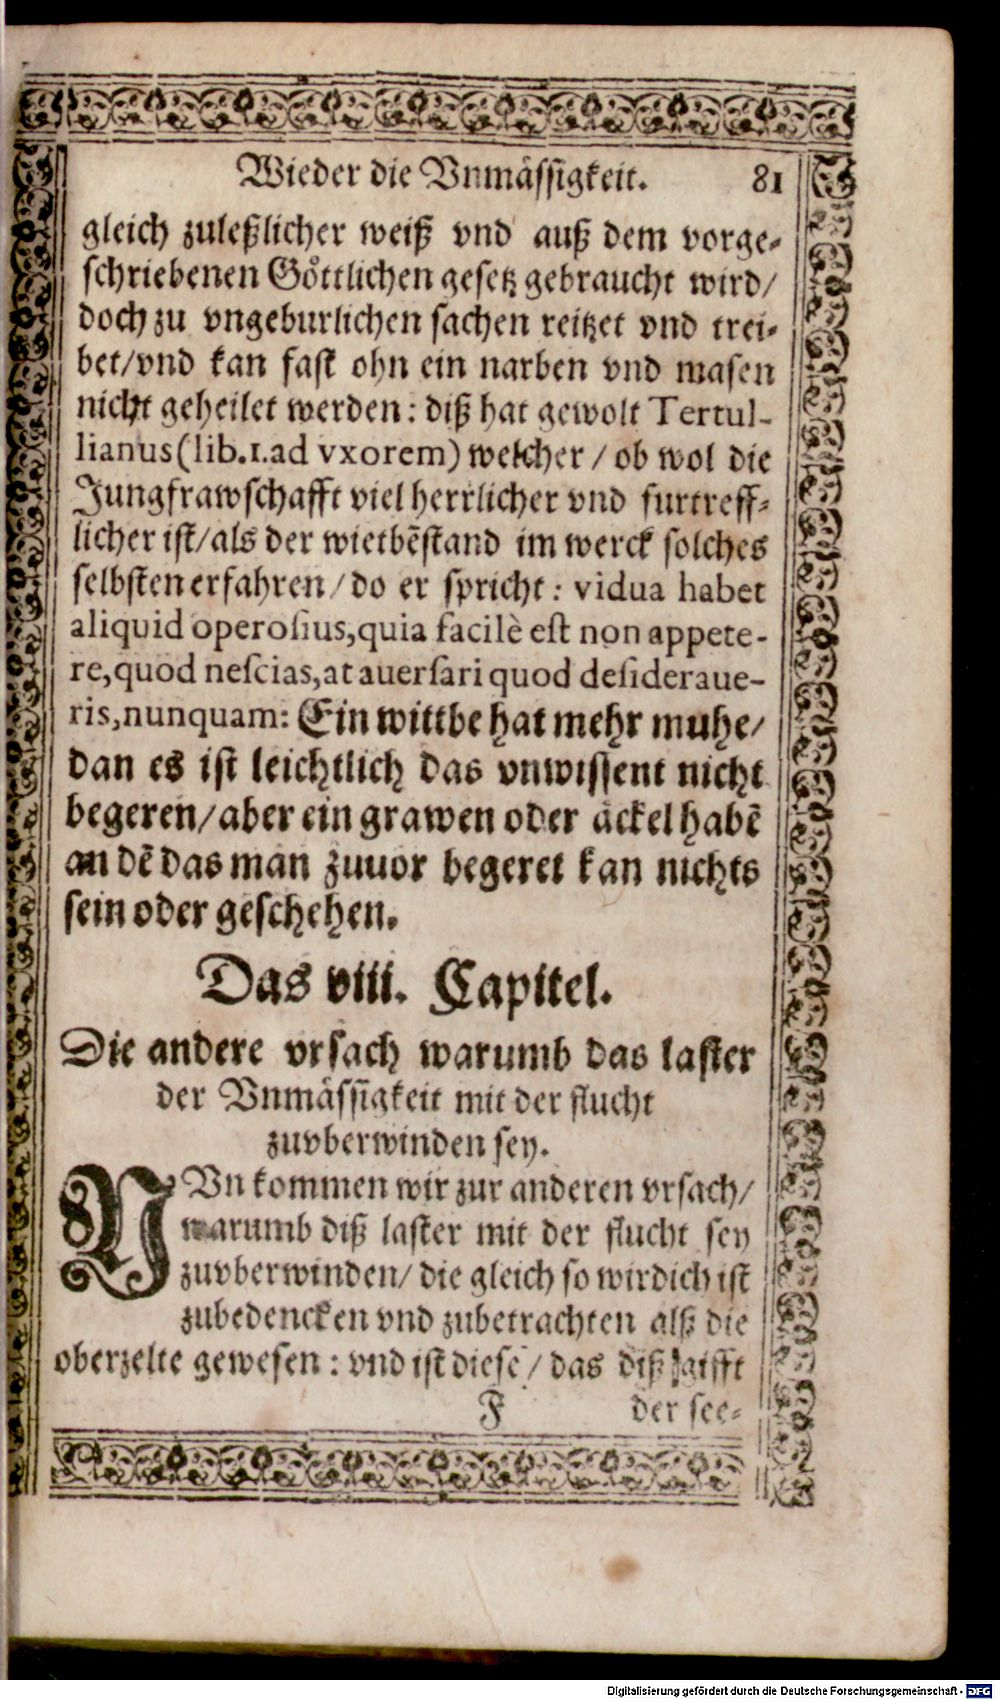 Wieder die Vnmässigkeit. 81
gleich zuleßlicher weiß vnd auß dem vorge-
schriebenen Göttlichen gesetz gebraucht wird/
doch zu vngeburlichen sachen reitzet vnd trei-
bet/vnd kan fast ohn ein narben vnd masen
nicht geheilet werden: diß hat gewolt Tertul-
lianus (lib.1.ad vxorem) welcher / ob wol die
Jungfrawschafft viel herrlicher vnd furtreff-
licher ist/als der wietbẽstand im werck solches
selbsten erfahren / do er spricht: vidua habet
aliquid operosius,quia facilè est non appete-
re,quod nescias,at auersari quod desideraue-
ris,nunquam: Ein wittbe hat mehr muhe/
dan es ist leichtlich das vnwissent nicht
begeren/aber ein grawen oder äckel habẽ
an dẽ das man zuuor begeret kan nichts
sein oder geschehen.
Das viii. Capitel.
Die andere vrsach warumb das laster
der Vnmässigkeit mit der flucht
zuvberwinden sey.
NVn kommen wir zur anderen vrsach/
warumb diß laster mit der flucht sey
zuvberwinden/ die gleich so wirdich ist
zubedencken vnd zubetrachten alß die
oberzelte gewesen: vnd ist diese / das diß gifft
F der see-
Digitalisierung gefördert durch die Deutsche Forschungsgemeinschaft - DFG